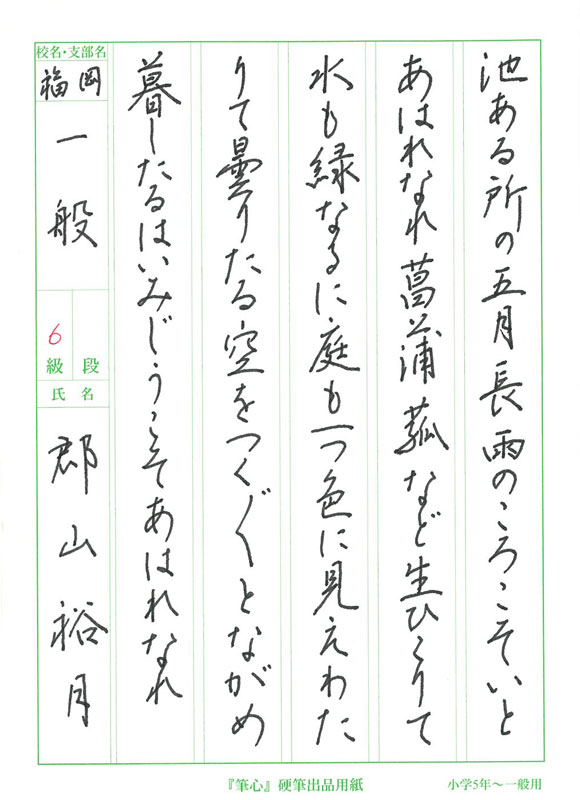 池ある所の五月長雨のころこそいと
あはれなれ菖蒲菰など生ひこりて
水も緑なるに庭も一つ色に見えわた
りて曇りたる空をつく〴〵とながめ
暮したるはいみじうこそあはれなれ
校名・支部名
福岡
一般
6
級 段
氏名
郡山裕月
『筆心』硬筆出品用紙
小学5年～一般用